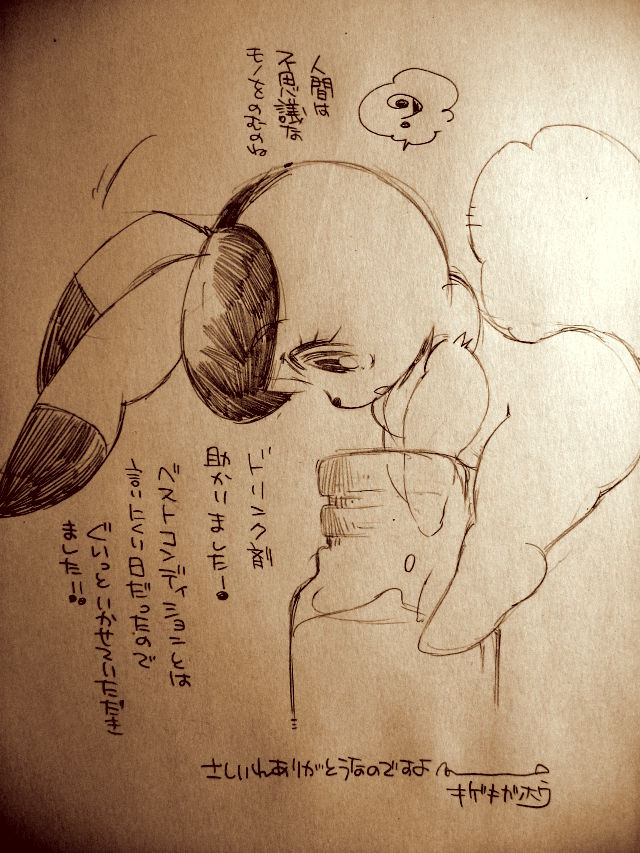 人間は
不思議な
モノをのむのね
ドリンク剤
助かりました！
ベストコンディションとは
言いにくい日だったので
ぐいっといかせていただき
ました!!
さしいれありがとうなのですよ